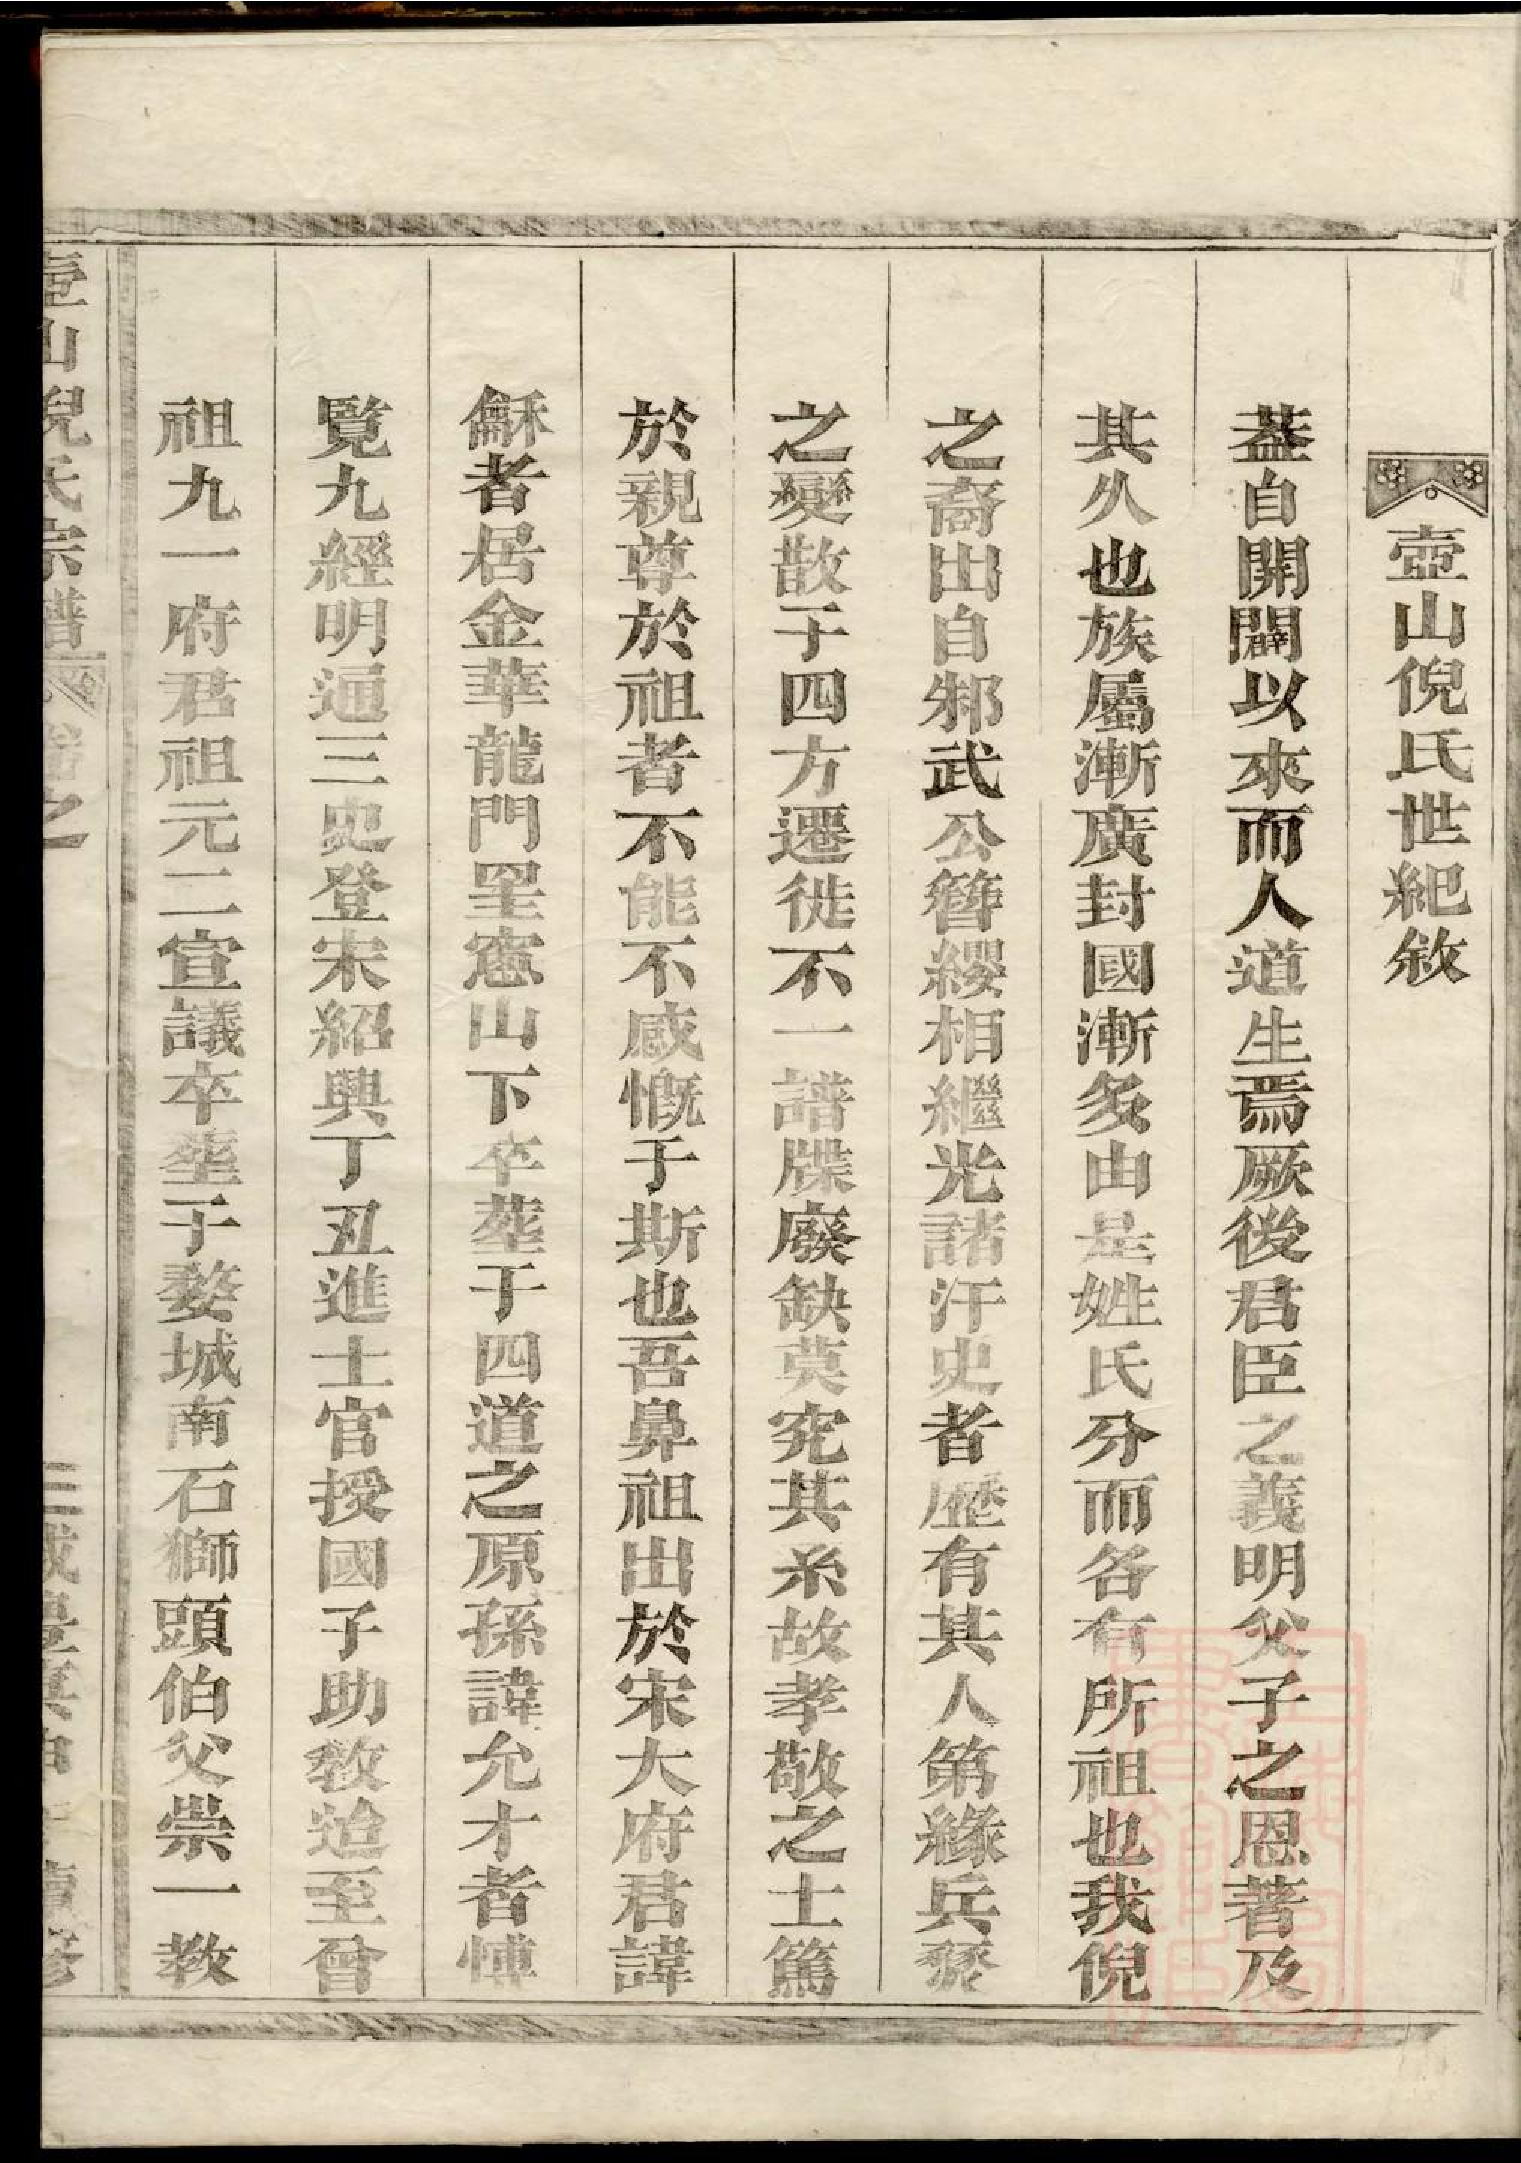 壺山倪氏世紀敘
葢自開闢以來而人道生焉厥後君臣之義明父子之恩著及
其久也族屬漸廣封國漸多由是姓氏分而各有所祖也我倪
之裔出自邾武公簪纓相繼光諸汗史者歷有其人第緣兵燹
之變散于四方遷徙不一譜牒廢缺莫究其系故孝敬之士篤
於親尊於祖者不能不感慨于斯也吾鼻祖出於宋大府君諱
龢者居金華龍門里窓山下卒塟于四道之原孫諱允才者愽
覽九經明通三史登宋紹興丁丑進士官授國子助教迨至曾
祖九一府君祖元二宣議卒塟于婺城南石獅頭伯父崇一教
壺山倪氏宗譜 卷之
三 咸豐 續修